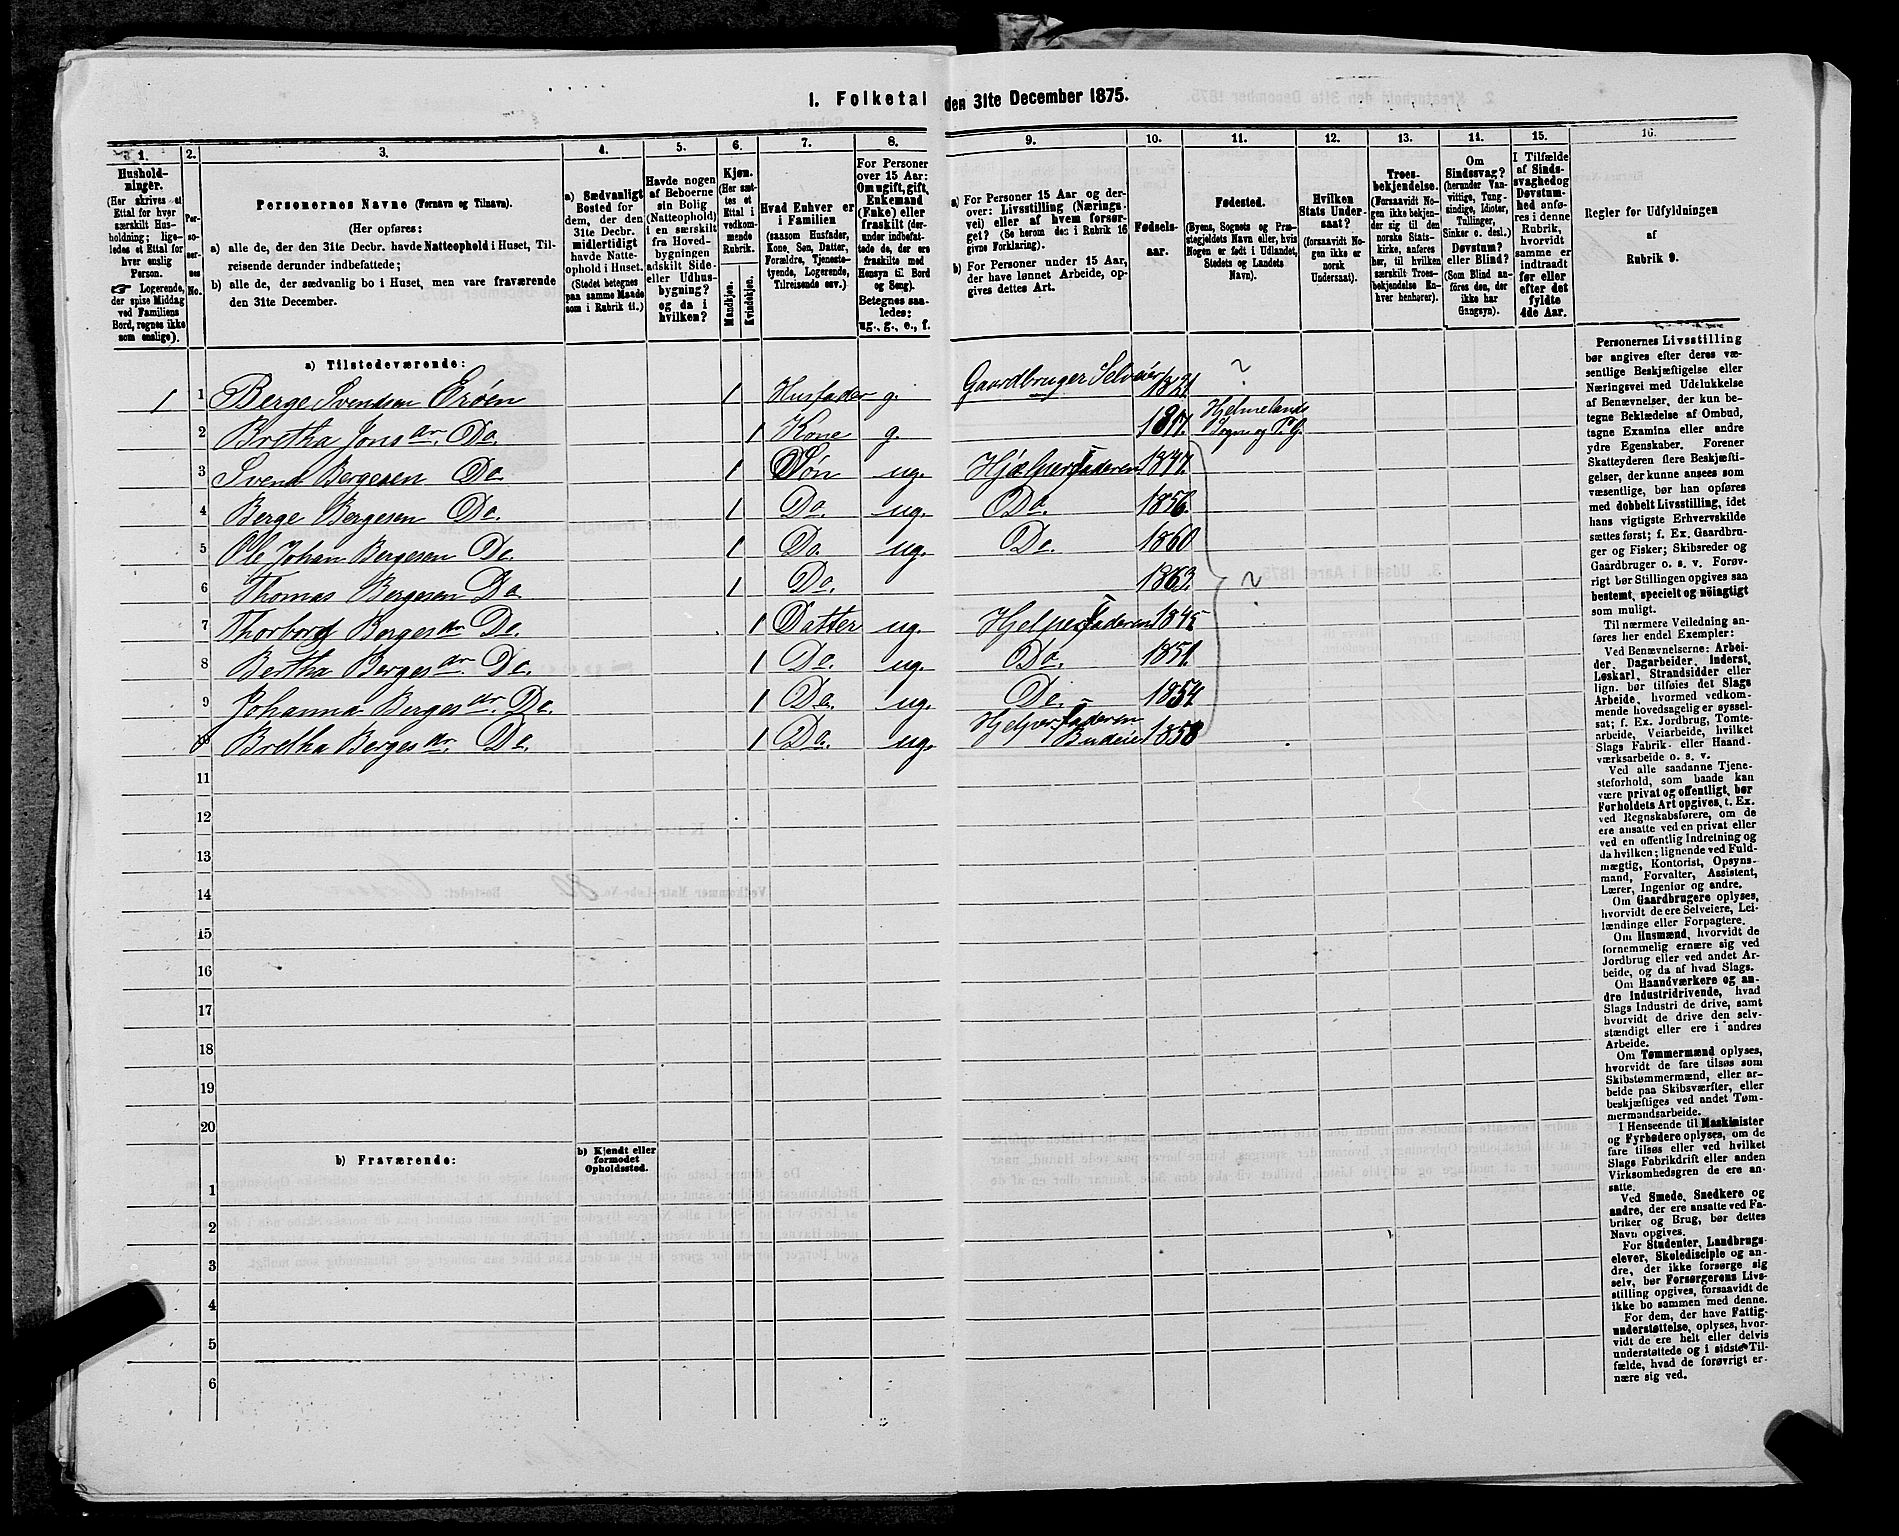 1. Folketal den 31te December 1875.
1.
Hushold-
ninger.
(Her skrives et
Ettal for hver
særskilt Hus-
holdning; lige-
ledes et Ettal for
hver enslig
Person.
☞ Logerende,
der spise Middag
ved Familiens
Bord, regnes ikke
som enslige).
2.
Per-
so-
ner-
nes
No.
3.
Personernes Navne (Fornavn og Tilnavn).
(Her opføres:
a) alle de, der den 31te Decbr. havde Natteophold i Huset, Til-
reisende derunder indbefattede;
b) alle de, der sædvanlig bo i Huset, men vare fraværende
den 31te December.
4.
a) Sædvanligt
Bosted for
dem, der den
31te Decbr.
midlertidigt
havde Natte-
ophold i Huset.
(Stedet betegnes
paa samme Maade
som i Rubrik 11.)
5.
Havde nogen
af Beboerne
sin Bolig
(Natteophold)
i en særskilt
fra Hoved-
bygningen
adskilt Side-
eller Udhus-
bygning?
og da i
hvilken?
6.
Kjøn.
(Her sæt-
tes et
Ettal i
vedkom-
mende
Rubrik.
Mandkjøn.
Kvindekjøn.
7.
Hvad Enhver er
i Familien
(saasom Husfader,
Kone, Søn, Datter,
Forældre, Tjeneste-
tyende, Logerende,
Tilreisende osv.)
8.
For Personer
over 15 Aar:
Om ugift, gift,
Enkemand
(Enke) eller
fraskilt (der-
under indbefat-
tede de, der ere
fraskilte med
Hensyn til Bord
og Seng).
Betegnes saa-
ledes:
ug., g., e., f.
9.
a) For Personer 15 Aar og der-
over: Livsstilling (Nærings-
vei) eller af hvem forsør-
get? (Se herom des i Rubrik 16
givne Forklaring).
b) For Personer under 15 Aar,
der have lønnet Arbeide, op-
gives dettes Art.
10.
Fødsels-
aar.
11.
Fødested.
(Byens, Sognets og Præ-
stegjeldets Navn eller, hvis
Nogen er født i Udlandet,
Stedets og Landets
Navn).
12.
Hvilken
Stats Under-
saat?
(forsaavidt No-
gen ikke er
norsk
Undersaat).
13.
Troes-
bekjendelse.
(Forsaavidt No-
gen ikke bekjen-
der sig til den
norske Stats-
kirke, anføres
her, til hvilken
særskilt Troes-
bekjendelse En-
hver henhører).
14.
Om
Sindssvag?
(herunder Van-
vittige, Tung-
sindige, Idioter,
Tullinger,
Sinker o. desl.)
Døvstum?
eller Blind?
(Som Blind an-
føres den, der
ikke har
Gangsyn).
15.
I Tilfælde
af Sinds-
svaghed og
Døvstum-
hed anfø-
res i denne
Rubrik,
hvorvidt
samme er
indtraadt
før eller
efter det
fyldte
4de Aar.
16.
Regler for Udfyldningen
af
Rubrik 9.
a) Tilstedeværende:
1 1 Berge Svendsen Erøen 1 Husfader g. Gaardbruger Selveier 1821 ~
2 Bretha Jonsdr. Do. 1 Kone g. 1817. Hjelmelands
Sogn og P. G.
3 Svend Bergesen Do 1 Søn ug. Hjælper Faderen 1847.
4 Berge Bergesen Do. 1 Do. ug. Do. 1856.
5 Ole Johan Bergesen Do. 1 Do. ug. Do. 1860
6 Thomas Bergesen Do 1 Do. 1863. ~
7 Thorbord Bergesdr Do. 1 Datter ug. Hjelper Faderen 1845
8 Bertha Bergesdr. Do. 1 Do. ug. Do. 1851.
9 Johanna Bergesdr. Do. 1 Do. ug. Do. 1854.
10 Bretha Bergesdr. Do. 1 Do. ug. Hjelper Faderen
Budeie 1858
11
12
13
14
15
16
17
18
19
20
b) Fraværende:
b) Kjendt eller
formodet
Opholdssted.
1
2
3
4
5
6
Personernes Livsstilling
bør angives efter deres væ-
sentlige Beskjæftigelse eller
Næringsvei med Udelukkelse
af Benævnelser, der kun be-
tegne Beklædelse af Ombud,
tagne Examina eller andre
ydre Egenskaber. Forener
Skatteyderen flere Beskjæfti-
gelser, der kunne ansees som
væsentlige, bør han opføres
med dobbelt Livsstilling, idet
hans vigtigste Erhvervskilde
sættes først; f. Ex. Gaardbru-
ger og Fisker; Skibsreder og
Gaardbruger o. s. v. Forøv-
rigt bør Stillingen opgives saa
bestemt, specielt og nøiagtigt
som muligt.
Til nærmere Veiledning an-
føres her endel Exempler:
Ved Benævnelserne: Arbei-
der, Dagarbeider, Inderst,
Løskarl, Strandsidder eller
lign. bør tilføies det Slags
Arbeide, hvormed vedkom-
mende hovedsagelig er syssel-
sat; f. Ex. Jordbrug, Tomte-
arbeide, Veiarbeide, hvilket
Slags Fabrik- eller Haand-
værksarbeide o. s. v.
Ved alle saadanne Tjene-
steforhold, som baade kan
være privat og offentligt, bør
Forholdets Art opgives, t. Ex.
ved Regnskabsførere, om de
ere ansatte ved en privat eller
ved en offentlig Indretning og
da hvilken; lignende ved Fuld-
mægtig, Kontorist, Opsyns-
mand, Forvalter, Assistent,
Lærer, Ingeniør og andre.
Om Gaardbrugere oplyses,
hvorvidt de ere Selveiere, Lei-
lændinge eller Forpagtere.
Om Husmænd, hvorvidt de
fornemmelig ernære sig ved
Jordbrug eller ved andet Ar-
beide, og da af hvad Slags.
Om Haandværkere og an-
dre Industridrivende, hvad
Slags Industri de drive, samt
hvorvidt de drive den selv-
stændigt eller ere i andres
Arbeide.
Om Tømmermænd oplyses,
hvorvidt de fare tilsøs som
Skibstømmermænd, eller ar-
beide paa Skibsværfter, eller
beskjæftiges ved andet Tøm-
mermandsarbeide.
I Henseende til Maskinister
og Fyrbødere oplyses, om de
fare tilsøs eller ved hvilket
Slags Fabrikdrift eller anden
Virksomhedsgren de ere an-
satte.
Ved Smede, Snedkere og
andre, der ere ansatte ved Fa-
briker og Brug, bør dettes
Navn opgives.
For Studenter, Landbrugs-
elever, Skoledisciple og an-
dre, der ikke forsørge sig
selv, bør Forsørgerens Livs-
stilling opgives, forsaavidt de
ikke bo sammen med denne.
For dem, der have Fattig-
understøttelse, oplyses, hvor-
vidt de ere helt eller delvis
understøttede og i sidste Til-
fælde, hvad de forøvrigt er-
nære sig ved.